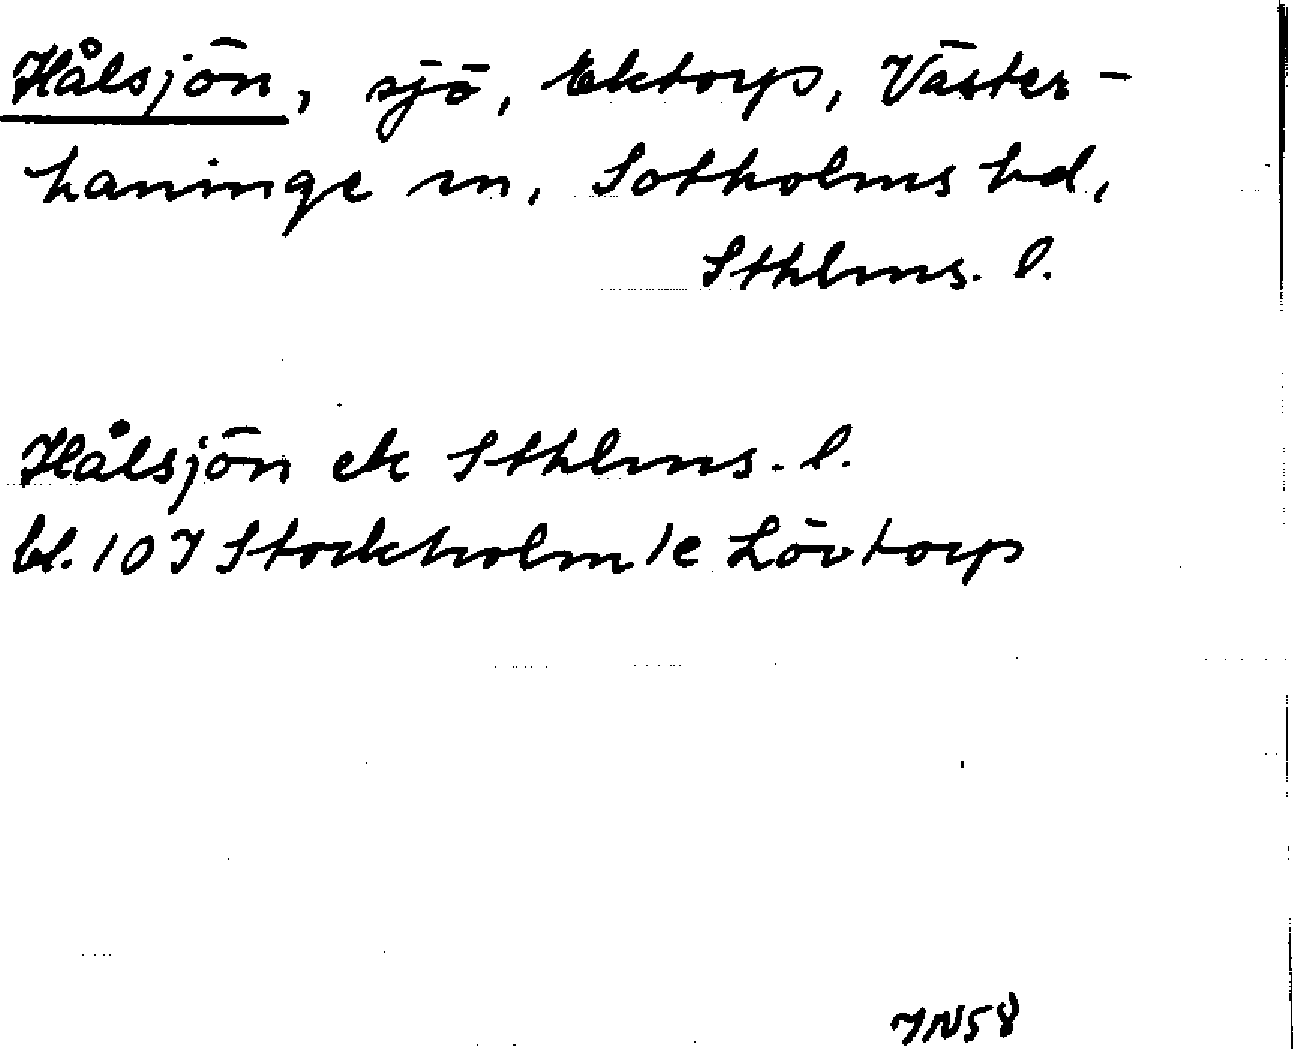 Hålsjön, sjö, Ektorp, Väster-
haninge sn, Sotholms hd,
Sthlms. l.
Hålsjön ek Sthlms. l.
bl. 10 I Stockholm 1e Lövtorp
IN58